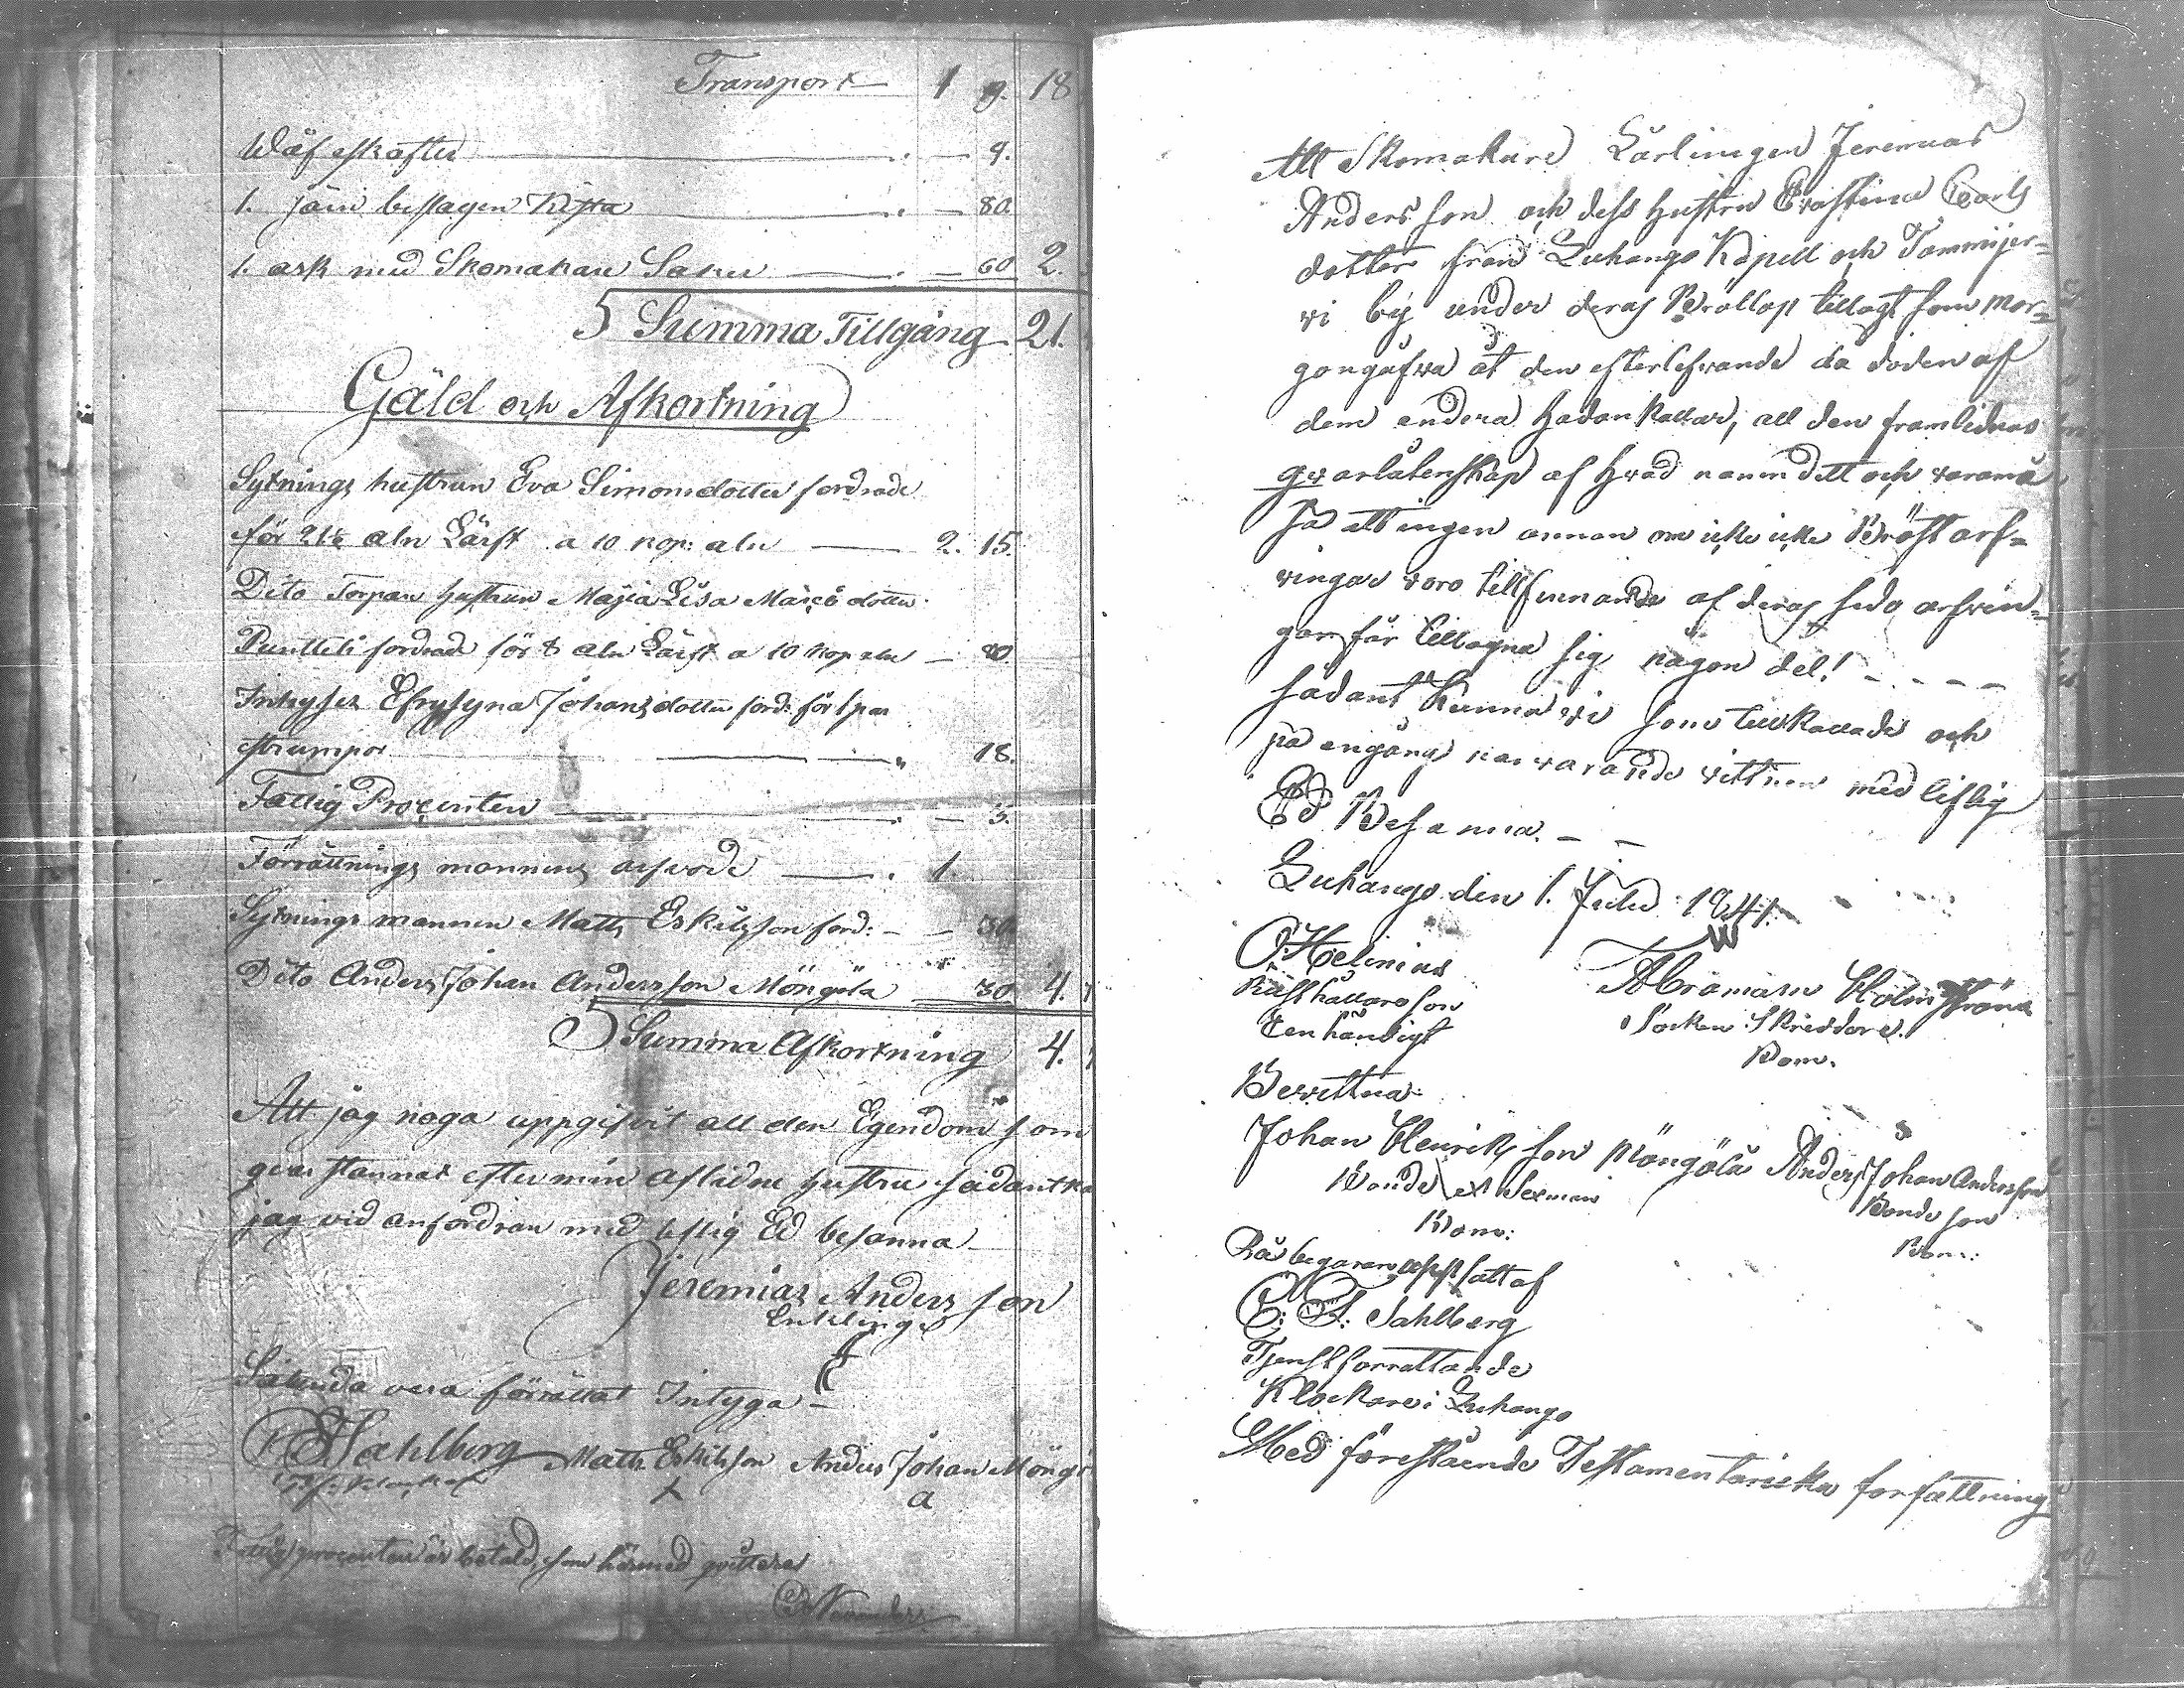 Transport 1 9. 18
Wäfskafter — 9.
1. järn beslagen Kista — 80.
1. ask med Skomakare Saker — 60 2.
Summa Tillgång 21.
Gäld och Afkortning
Sytnings hustrun Eva Simonsdotter fordrade
för 21½ aln Lärft a 10 kop: aln — 2. 15.
Dito Torpare hustrun Maja Lisa dotter
fordrade för 8 aln Lärft a 10 kop aln — 80
Inhyses Johansdotter ford: för 1 par
strumpor — 18.
Fattig Procenten — 5.
Förrättnings mannens arfvode — 1.
Sytnings mannen Matts Eskilsson ford: — 30.
Dito Anders Johan Andersson Möngölä 30 4.
Summa Afkortning 4.
Att jag noga uppgifvit all den Egendom som
qvar stannat efter min aflidne hustru sådant
jag vid anfordran med liflig Ed besanna
Jeremias Andersson
Enkling
Sålunda vara förrättat Intyga —
Sahlberg Matts Eskilsson Anders Johan
Fattig procenten är betald, som härmed qvitteras
Att Skomakare Lärlingen Jeremias
Andersson och dess hustru Carls
dotter från Luhango Kapell och Tammijer=
vi by under deras Bröllop tillagt som mor=
gongåfva åt den efterlefvande då döden af
dem endera hädankallar, all den framlidnas
qvarlåtenskap af hvad namn dett och varamå
så att ingen annan om icke icke Bröst arf=
vingar voro tillfinnande af deras sido arfvin=
gar får tillägna sig någon del! - - - -
sådant kunna vi som tillkallade och
på engång närvarande vittnen med liflig
Ed Besanna. — —
Luhango den 1. Julii 1841.
Helenius
son
Egenhändigt
Abraham Holmström
Socken Skreddare.
Bom.
Bevittna:
Johan Henriksson Möngölä Anders Johan Andersson
Bonde ext Sexman Bonde son
Bom: Bom:
På begäran uppsatt af
Sahlberg
Tjenstförrättande
Klockare i Luhango
Med förestående Testamentariska författning